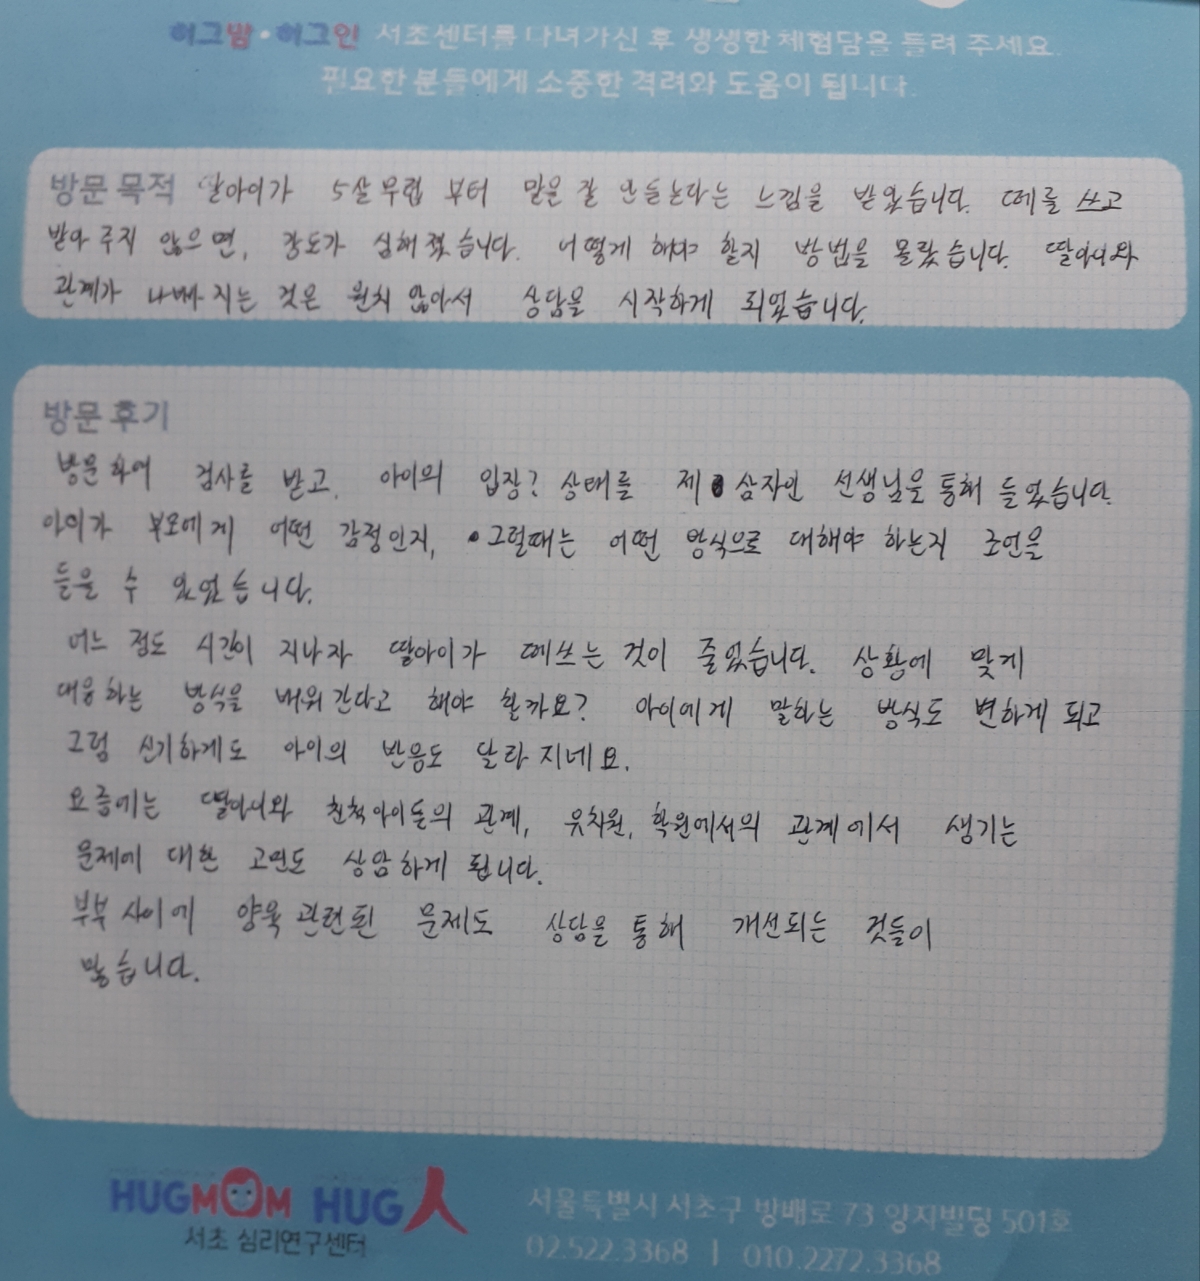 허그맘·허그인 서초센터를 다녀가신 후 생생한 체험담을 들려 주세요.
필요한 분들에게 소중한 격려와 도움이 됩니다.
방문 목적 딸아이가 5살무렵 부터 말을 잘 안듣는다는 느낌을 받았습니다. 떼를 쓰고
받아 주지 않으면, 강도가 심해졌습니다. 어떻게 해야 할지 방법을 몰랐습니다. 딸아이와
관계가 나빠지는 것은 원치 않아서 상담을 시작하게 되었습니다.
방문 후기
방문하여 검사를 받고, 아이의 입장? 상태를 제 삼자인 선생님을 통해 들었습니다.
아이가 부모에게 어떤 감정인지, 그럴때는 어떤 방식으로 대해야 하는지 조언을
들을 수 있었습니다.
어느 정도 시간이 지나자 딸아이가 떼쓰는 것이 줄었습니다. 상황에 맞게
대응하는 방식을 배워간다고 해야 할까요? 아이에게 말하는 방식도 변하게 되고
그럼 신기하게도 아이의 반응도 달라지네요.
요즘에는 딸아이와 친척아이들의 관계, 유치원, 학원에서의 관계에서 생기는
문제에 대한 고민도 상담하게 됩니다.
부부 사이에 양육 관련된 문제도 상담을 통해 개선되는 것들이
많습니다.
HUGMOM HUG人
서초 심리연구센터
서울특별시 서초구 방배로 73 양지빌딩 501호
02.522.3368 | 010.2272.3368